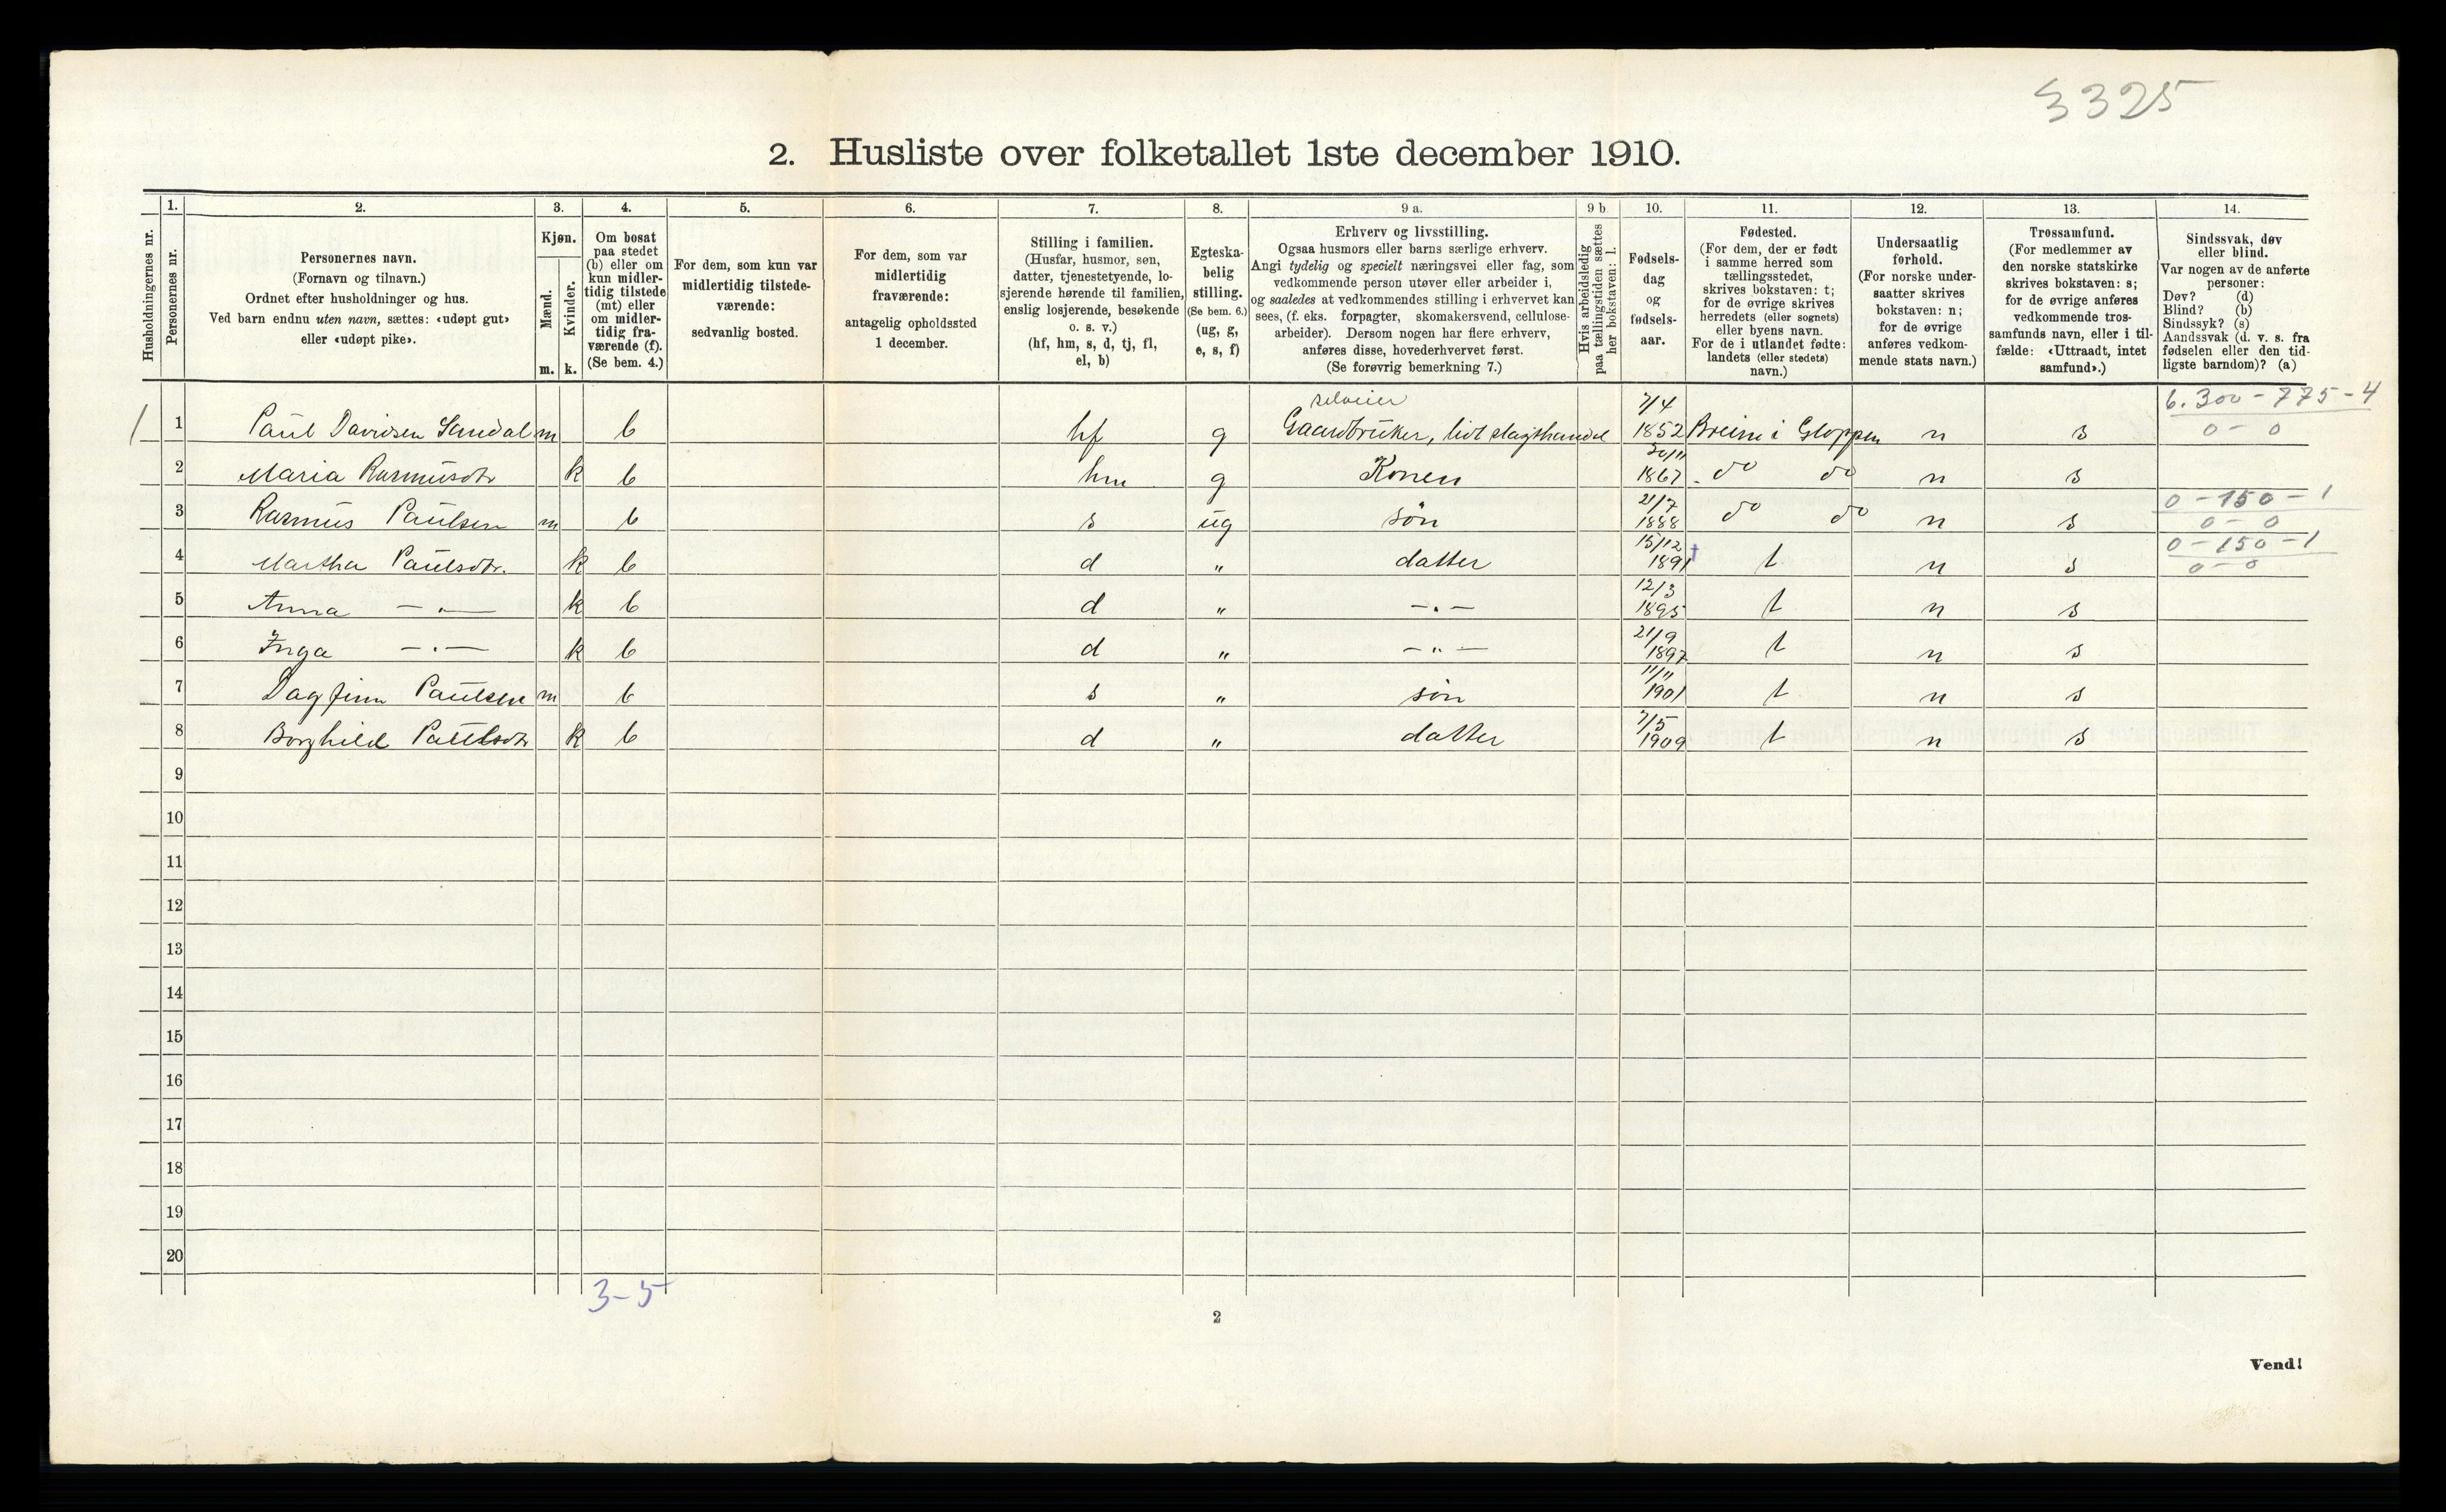 3325
2. Husliste over folketallet 1ste december 1910.
Husholdningernes nr.
1.
Personernes nr.
2.
Personernes navn.
(Fornavn og tilnavn.)
Ordnet efter husholdninger og hus.
Ved barn endnu uten navn, sættes: «udøpt gut»
eller «udøpt pike».
3.
Kjøn.
Mænd.
Kvinder.
m. k.
4.
Om bosat
paa stedet
(b) eller om
kun midler-
tidig tilstede
(mt) eller
om midler-
tidig fra-
værende (f).
(Se bem. 4.)
5.
For dem, som kun var
midlertidig tilstede-
værende:
sedvanlig bosted.
6.
For dem, som var
midlertidig
fraværende:
antagelig opholdssted
1 december.
7.
Stilling i familien.
(Husfar, husmor, søn,
datter, tjenestetyende, lo-
sjerende hørende til familien,
enslig losjerende, besøkende
o. s. v.)
(hf, hm, s, d, tj, fl,
el, b)
8.
Egteska-
belig
stilling.
(Se bem. 6.)
(ug, g,
e, s, f)
9 a.
Erhverv og livsstilling.
Ogsaa husmors eller barns særlige erhverv.
Angi tydelig og specielt næringsvei eller fag, som
vedkommende person utøver eller arbeider i,
og saaledes at vedkommendes stilling i erhvervet kan
sees, (f. eks. forpagter, skomakersvend, cellulose-
arbeider). Dersom nogen har flere erhverv,
anføres disse, hovederhvervet først.
(Se forøvrig bemerkning 7.)
9 b
Hvis arbeidsledig
paa tællingstiden sættes
her bokstaven: l.
10.
Fødsels-
dag
og
fødsels-
aar.
11.
Fødested.
(For dem, der er født
i samme herred som
tællingsstedet,
skrives bokstaven: t;
for de øvrige skrives
herredets (eller sognets)
eller byens navn.
For de i utlandet fødte:
landets (eller stedets)
navn.)
12.
Undersaatlig
forhold.
(For norske under-
saatter skrives
bokstaven: n;
for de øvrige
anføres vedkom-
mende stats navn.)
13.
Trossamfund.
(For medlemmer av
den norske statskirke
skrives bokstaven: s;
for de øvrige anføres
vedkommende tros-
samfunds navn, eller i til-
fælde: «Uttraadt, intet
samfund».)
14.
Sindssvak, døv
eller blind.
Var nogen av de anførte
personer:
Døv? (d)
Blind? (b)
Sindssyk? (s)
Aandssvak (d. v. s. fra
fødselen eller den tid-
ligste barndom)? (a)
selveier 7/4 6.300 - 775 - 4
1 1 Paul Davidsen Sandal m b hf g Gaardbruker, lidt slagthandel 1852 Breim i Gloppen n s 0 - 0
30/11
2 Maria Rasmusdtr k b hm g Konen 1867 do do n s
21/7 0 - 150 - 1
3 Rasmus Paulsen m b s ug søn 1888 do do n s 0 - 0
15/12 0 - 150 - 1
4 Martha Paulsdtr. k b d „ datter 1891 t n s 0 - 0
12/3
5 Anna —„— k b d „ —„— 1895 t n s
21/9
6 Inga —„— k b d „ —„— 1897 t n s
11/11
7 Dagfinn Paulsen m b s „ søn 1901 t n s
7/5
8 Borghild Paulsdtr k b d „ datter 1909 t n s
9
10
11
12
13
14
15
16
17
18
19
20
3-5
2
Vend!